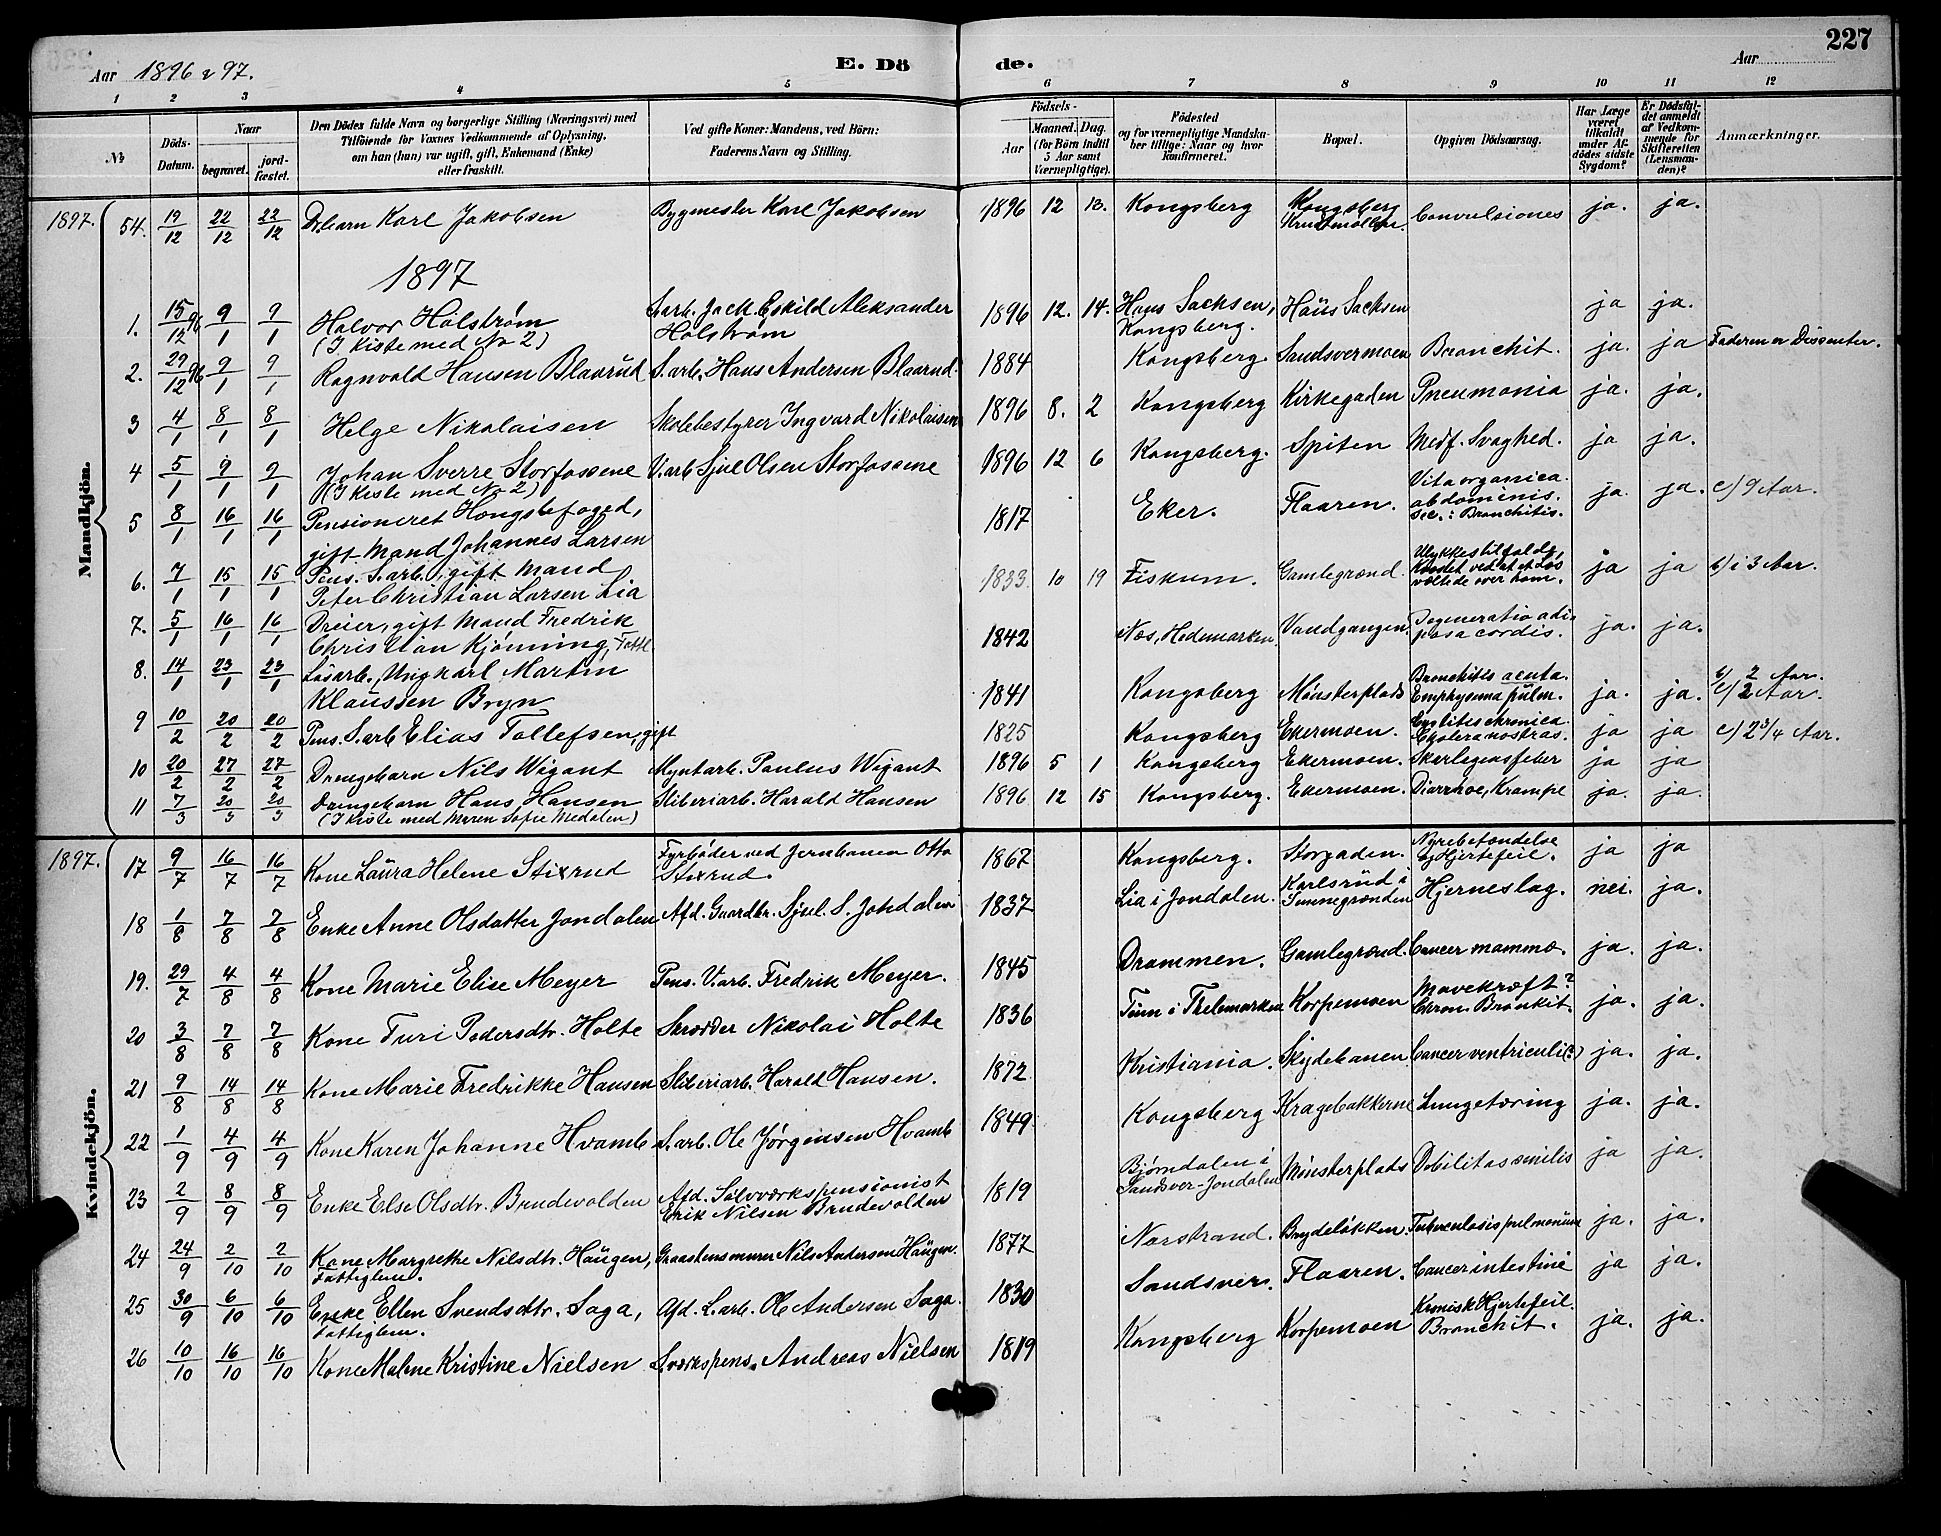 Aar 1896 & 97.
E. Dö
de.
Aar
227
1 2 3 4 5 6 7 8 9 10 11 12
No
Döds-Datum.
Naar
begravet.
jord-fæstet.
Den Dödes fulde Navn og borgerlige Stilling (Næringsvei) med
Tilföiende for Voxnes Vedkommende af Oplysning,
om han (hun) var ugift, gift, Enkemand (Enke)
eller fraskilt.
Ved gifte Koner: Mandens, ved Börn:
Faderens Navn og Stilling.
Födsels-
Aar
Maaned. Dag.
(for Börn indtil
5 Aar samt
Værnepligtige).
Födested
og for værnepligtige Mandska-
ber tillige: Naar og hvor
konfirmeret.
Bopæl.
Opgiven Dödsaarsag.
Har Læge
været
tilkaldt
under Af-
dödes sidste
Sygdom?
Er Dödsfal-
det anmeldt
af Vedkom-
mende for
Skifteretten
(Lensman-
den)?
Anmærkninger.
Mandkjön.
1897. 54. 19/12 22/12 22/12 Drbarn Karl Jakobsen Bygmester Karl Jakobsen 1896 12 13. Kongsberg Kongsberg Krudtmøllen. Convulsiones ja. ja.
1897
1. 15/12 96 9/1 9/1 Halvor Holstrøm (I Kiste med No 2) Sarb. Jack. Eskild Aleksander Holstrøm 1896 12. 14. Hans Sachsen, Kongsberg. Haüs Sachsen ja ja.
2. 29/12 96 9/1 9/1 Ragnvald Hansen Blaarud S. arb. Hans Andersen Blaarud. 1884 Kongsberg. Sandsvermoen Bronchit. ja. ja Faderen er Dissenter.
3 4/1 8/1 8/1 Helge Nikolaisen Skolebestyrer Ingvard Nikolaisen 1896 8. 2 Kongsberg Kirkegaden Pneumonia ja. ja.
4 5/1 9/1 9/1 Johan Sverre Storfossene (I Kiste med No 2) V. arb Sjul Olsen Storfossene 1896 12 6 Kongsberg. Spiten Medf. Svaghed. ja ja.
5 8/1 16/1 16/1 Pensioneret Hongstefoged, gift Mand Johannes Larsen 1817 Eker. Flaaren. Vita organica abdominis. Sec.: Bronchitis. ja. ja. c) 9 Aar.
6. 7/1 15/1 15/1 Pens. S. arb., gift Mand Peter Christian Larsen Lia 1833. 10 19 Fiskum. Gamlegrænd. Ulykkestilfælde, Kvædet ved at et Læs væltede over ham. ja ja b) i 3 Aar.
7. 5/1 16/1 16/1 Dreier, gift Mand Fredrik Christian Kjønning, Fattl. 1842 Næs, Hedemarken Vandgangen. Degeneratio adiposa cordis. ja. ja.
8. 14/1 23/1 23/1 Løsarb., Ungkarl Martin Klaussen Bryn 1841 Kongsberg Münsterplads Bronchitis acuta. Emphysema pulm. ja. ja. b) 2 Aar. c) 2 Aar.
9 10/2 20/2 20/2 Pens. S. arb Elias Tollefsen, gift 1825 Kongsberg Ekermoen. Cystitis chronica. Cholera nostras. ja ja c) 2 3/4 Aar.
10 20/2 27/2 27/2 Drengebarn Nils Wigant Myntarb. Paulus Wigant 1896 5 1 Kongsberg Ekermoen. Skarlagensfeber ja ja
11 7/3 20/3 20/3 Drengebarn Hans Hansen (I Kiste med Maren Sofie Medalen) Sliberiarb. Harald Hansen 1896 12 15 Kongsberg. Ekermoen. Diarrhoe, Krampe ja. ja.
Kvindekjön.
1897. 17 9/7 16/7 16/7 Kone Laura Helene Stixrud Fyrbøder ved Jernbanen Otto Stixrud. 1867 Kongsberg. Storgaden. Nyrebetændelse og Hjertefeil. ja ja
18 1/8 7/8 7/8 Enke Anne Olsdatter Jondalen Afd. Gaardbr. Sjul. S. Jondalen 1837 Lia i Jondalen. Karlsrüd i Tunnegrænden Hjerneslag. nei. ja.
19. 29/7 4/8 4/8 Kone Marie Elise Meyer Pens. V. arb. Fredrik Meyer. 1845 Drammen. Gamlegrænd. Cancer mammæ. ja. ja.
20 3/8 7/8 7/8 Kone Turi Pedersdtr. Holte Skrædder Nikolai Holte 1836 Tinn i Thelemarken Korpemoen Mavekræft? Chron. Bronkit. ja. ja.
21 9/8 14/8 14/8 Kone Marie Fredrikke Hansen Sliberiarb. Harald Hansen. 1872 Kristiania. Skydebanen Cancer ventriculi(?) ja. ja.
22 1/9 4/9 4/9 Kone Karen Johanne Hvamb S. arb. Ole Jørgensen Hvamb 1849 Kongsberg Kragebakkerne Lungetæring ja. ja.
23 2/9 8/9 8/9 Enke Else Olsdtr. Brudevolden Afd. Sølvværkspensionist Erik Nilsen Brudevolden 1819 Bjørndalen i Sandsver-Jondalen Münsterplads Debilitas senilis ja ja.
24 24/9 2/10 2/10 Kone Margrethe Nilsdtr. Haugen, Fattiglem. Graastensmurer Nils Andersen Haugen. 1877 Norstrand. Brydeløkken. Tuberculosis pulmonum ja. ja.
25 30/9 6/10 6/10 Enke Ellen Svendsdtr. Saga, Fattiglem. Afd. L. arb. Ole Andersen Saga. 1830 Sandsver. Flaaren. Cancer intestini ja ja.
26 10/10 16/10 16/10 Kone Malene Kristine Nielsen S. værkspens. Andreas Nielsen 1819 Kongsberg Korpemoen Kronisk Hjertefeil. Bronchit. ja. ja.